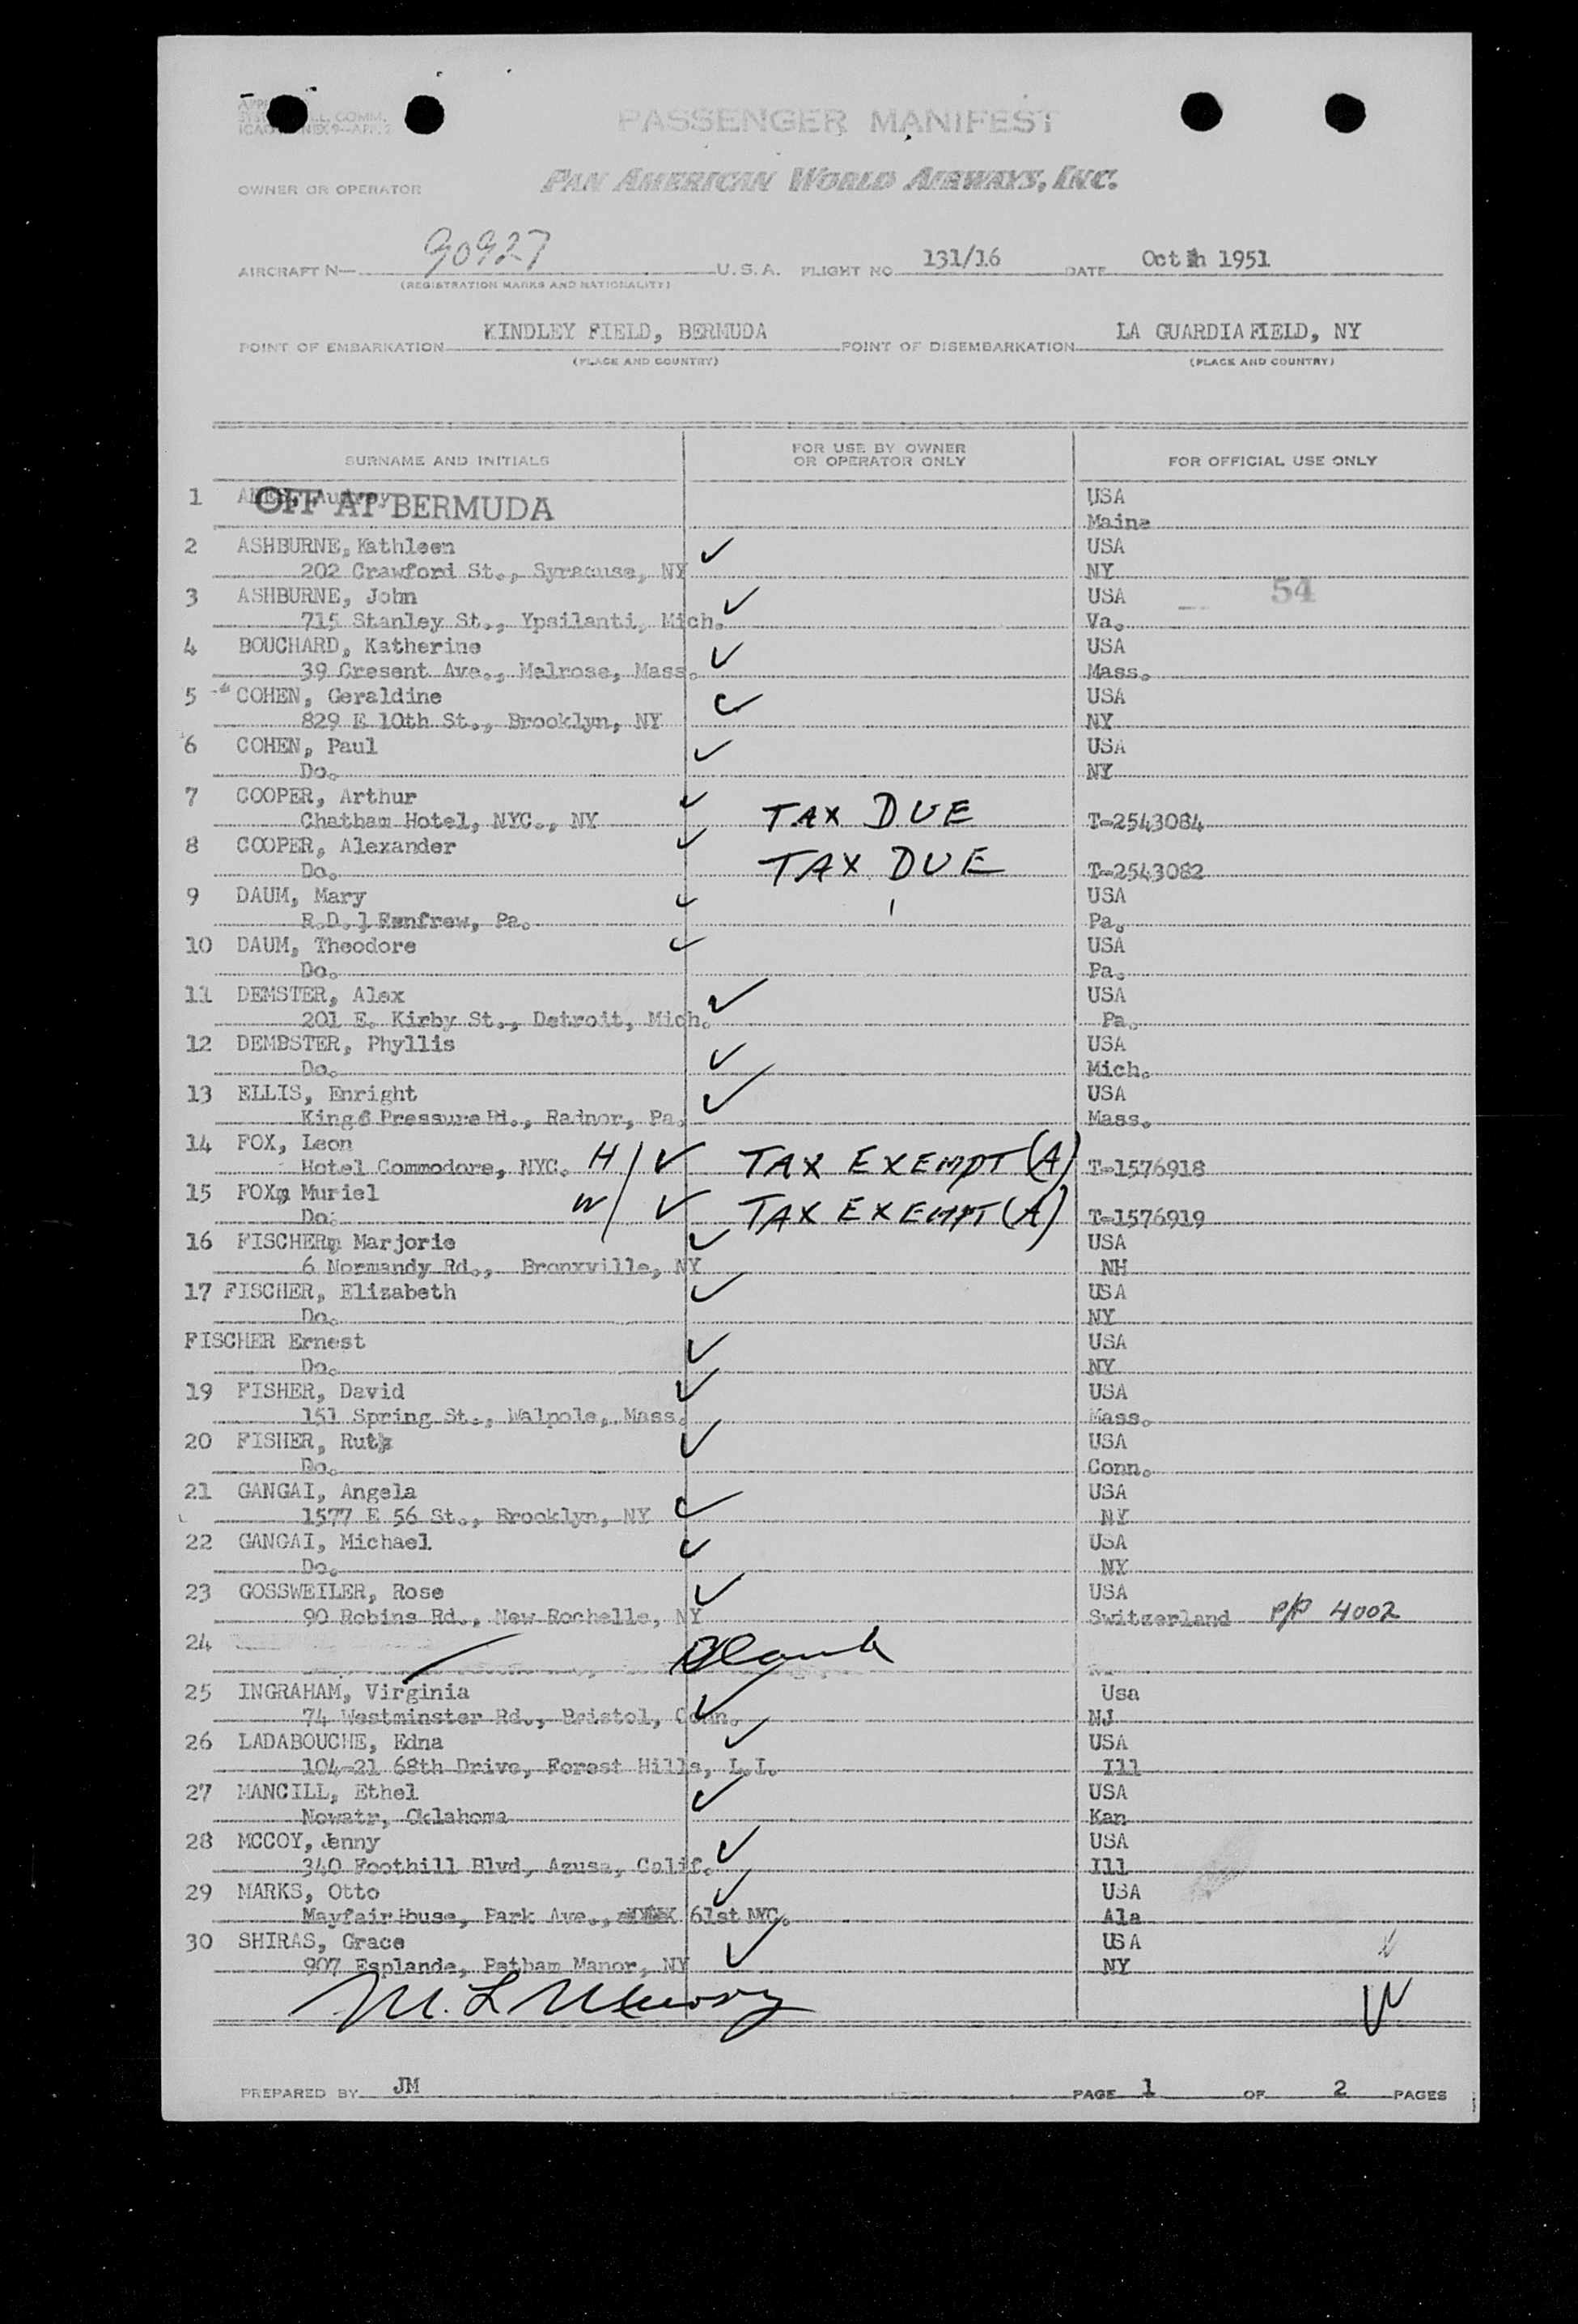 PASSENGER MANIFEST
OWNER OR OPERATOR PAN AMERICAN WORLD AIRWAYS, INC.
AIRCRAFT N— 90927 U.S.A. FLIGHT NO 131/16 DATE Oct 1951
(REGISTRATION MARKS AND NATIONALITY)
POINT OF EMBARKATION KINDLEY FIELD, BERMUDA POINT OF DISEMBARKATION LA GUARDIA FIELD, NY
(PLACE AND COUNTRY) (PLACE AND COUNTRY)
SURNAME AND INITIALS FOR USE BY OWNER OR OPERATOR ONLY FOR OFFICIAL USE ONLY
1 OFF AT BERMUDA USA
Maine
2 ASHBURNE, Kathleen ✓ USA
202 Crawford St., Syracuse, NY NY
54
3 ASHBURNE, John ✓ USA
715 Stanley St., Ypsilanti, Mich. Va.
4 BOUCHARD, Katherine ✓ USA
39 Cresent Ave., Melrose, Mass. Mass.
5 COHEN, Geraldine ✓ USA
829 E 10th St., Brooklyn, NY NY
6 COHEN, Paul ✓ USA
Do. NY
7 COOPER, Arthur ✓
Chatham Hotel, NYC., NY TAX DUE T-2543084
8 COOPER, Alexander ✓
Do. TAX DUE T-2543082
9 DAUM, Mary ✓ USA
R.D. 1 Renfrew, Pa. Pa.
10 DAUM, Theodore ✓ USA
Do. Pa.
11 DEMSTER, Alex ✓ USA
201 E. Kirby St., Detroit, Mich. Pa.
12 DEMBSTER, Phyllis ✓ USA
Do. Mich.
13 ELLIS, Enright ✓ USA
King & Pressure Rd., Radnor, Pa. Mass.
14 FOX, Leon
Hotel Commodore, NYC. H/ ✓ TAX EXEMPT (A) T-1576918
15 FOX, Muriel
Do. W/ ✓ TAX EXEMPT (A) T-1576919
16 FISCHER, Marjorie ✓ USA
6 Normandy Rd., Bronxville, NY NH
17 FISCHER, Elizabeth ✓ USA
Do. NY
FISCHER Ernest ✓ USA
Do. NY
19 FISHER, David ✓ USA
151 Spring St., Walpole, Mass. Mass.
20 FISHER, Ruth ✓ USA
Do. Conn.
21 GANGAI, Angela USA
1577 E 56 St., Brooklyn, NY ✓ NY
22 GANGAI, Michael ✓ USA
Do. NY
23 GOSSWEILER, Rose ✓ USA
90 Robins Rd., New Rochelle, NY Switzerland P/P 4002
24 Blank
25 INGRAHAM, Virginia ✓ Usa
74 Westminster Rd., Bristol, Conn. NJ
26 LADABOUCHE, Edna ✓ USA
104-21 68th Drive, Forest Hills, L.I. Ill
27 MANCILL, Ethel ✓ USA
Nowatr, Oklahoma Kan
28 MCCOY, Jenny ✓ USA
340 Foothill Blvd, Azusa, Calif. Ill
29 MARKS, Otto ✓ USA
Mayfair House, Park Ave., 61st NYC. Ala
30 SHIRAS, Grace USA
907 Esplande, Petham Manor, NY ✓ NY
PREPARED BY JM PAGE 1 OF 2 PAGES